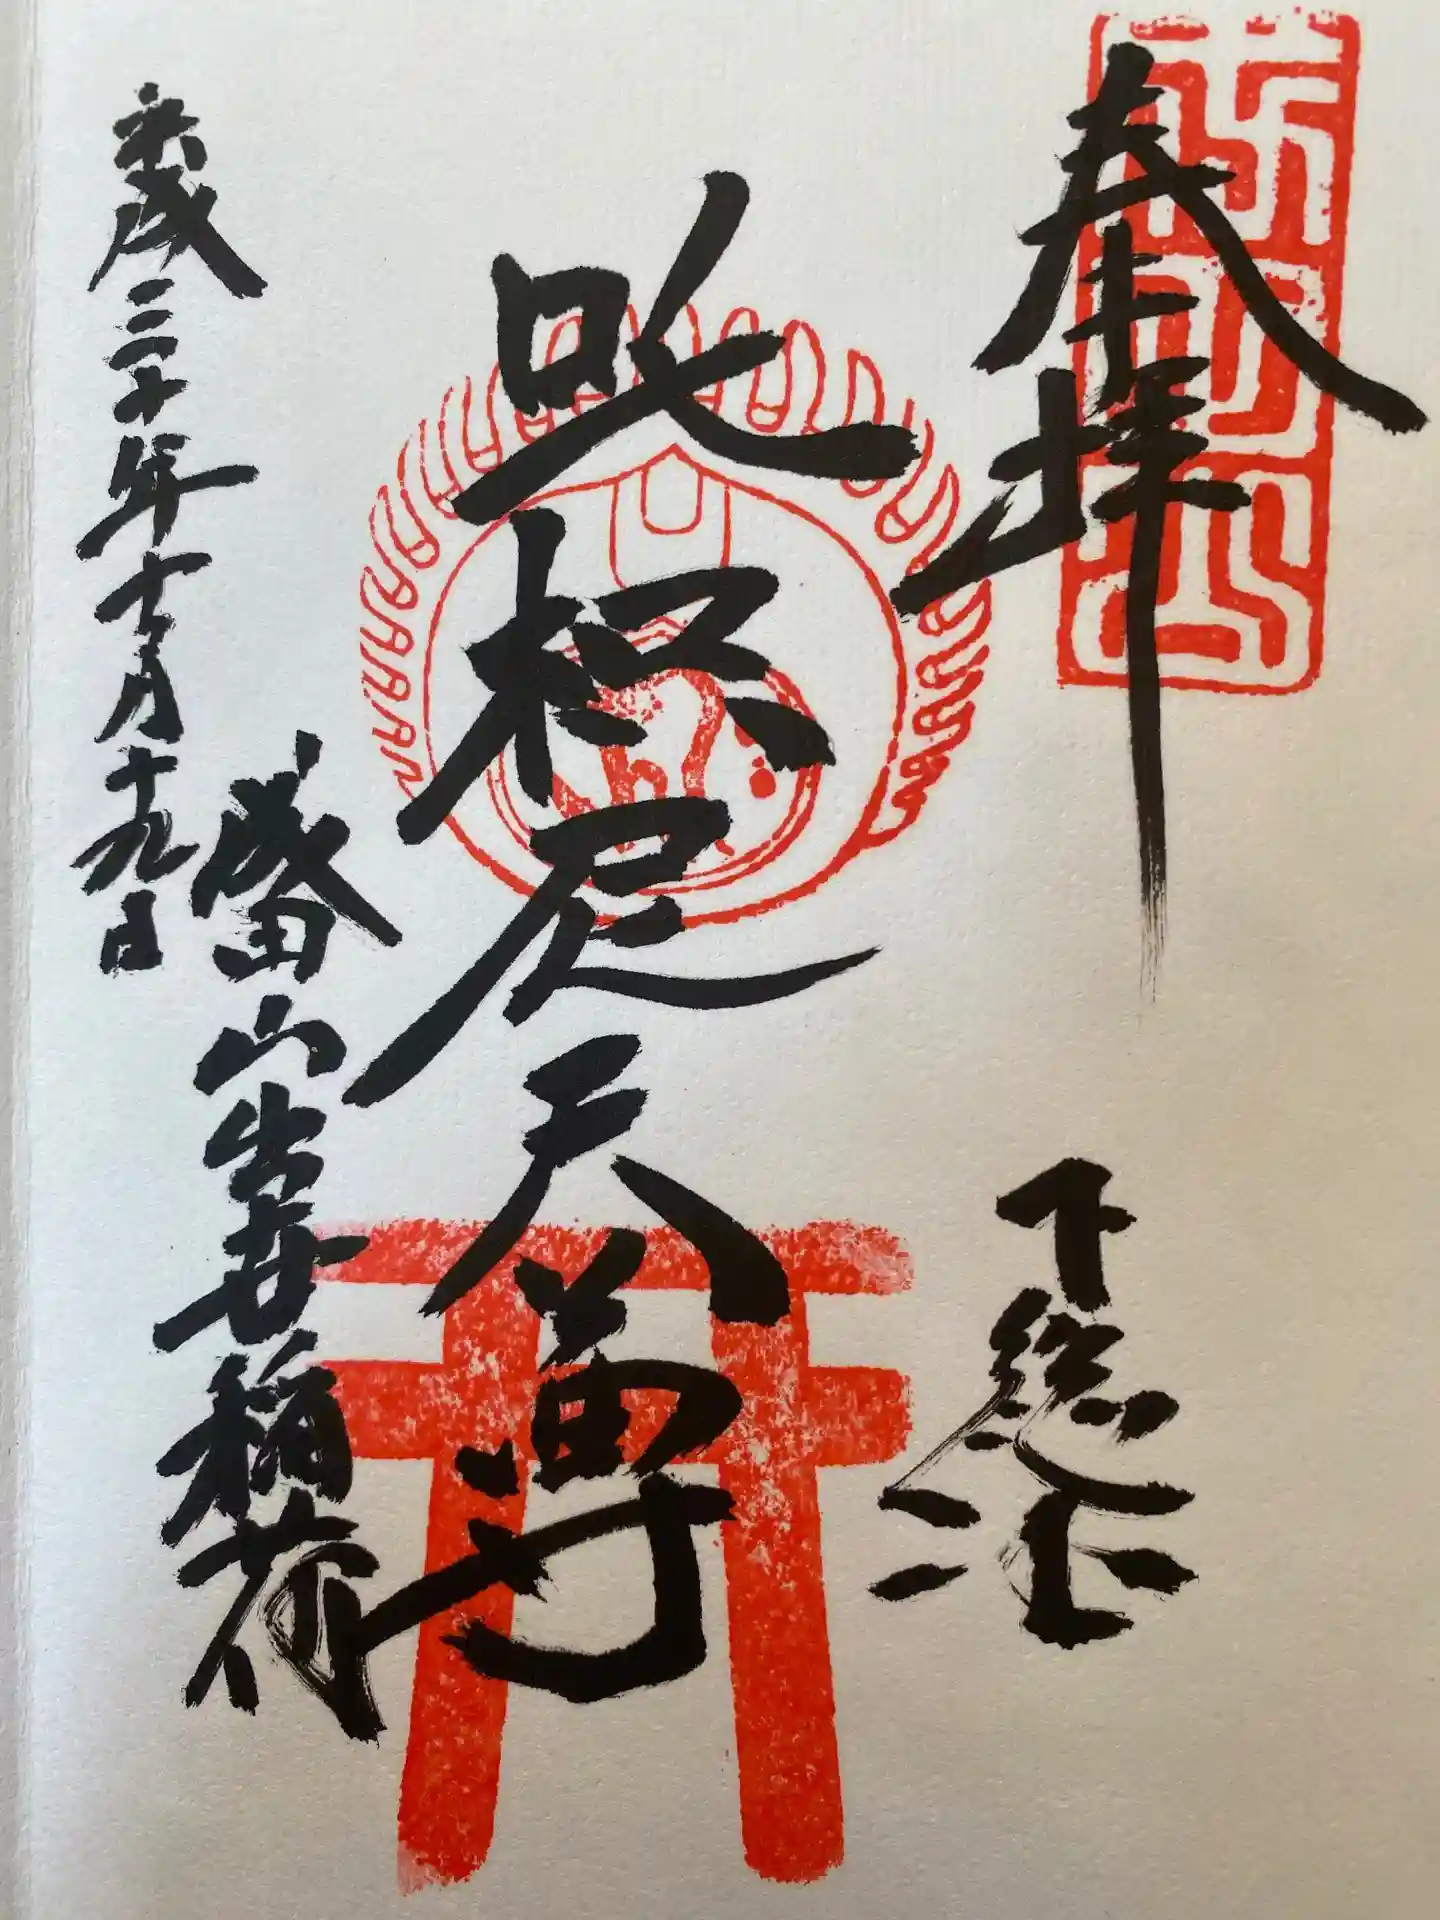 奉拝
下総
吒枳尼天尊
成田山出世稲荷
平成二十年十一月十九日